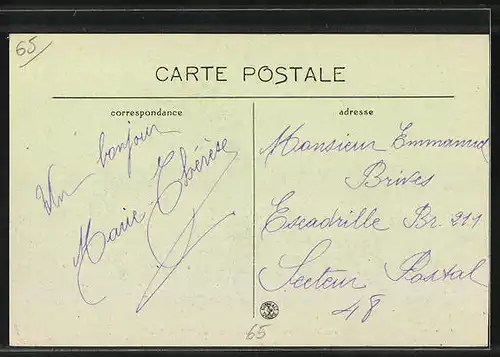 65
CARTE POSTALE
correspondance
Un bonjour
Marie-Thérèse
adresse
Monsieur Emmanuel
Brives
Escadrille Br. 211
Secteur Postal
48
65